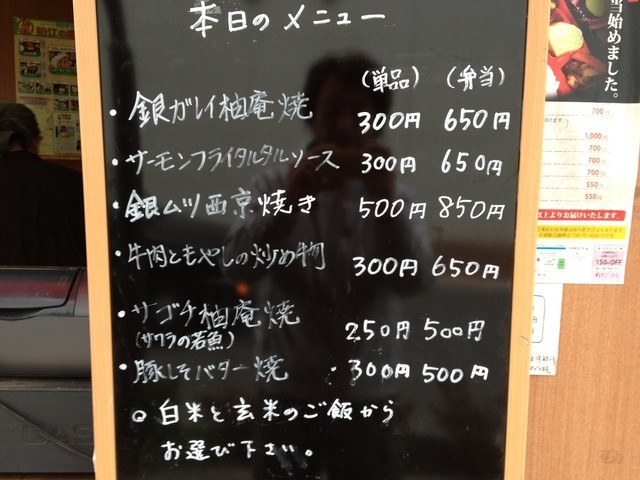 本日のメニュー
(単品) (弁当)
・銀ガレイ柚庵焼 300円 650円
・サーモンフライタルタルソース 300円 650円
・銀ムツ西京焼き 500円 850円
・牛肉ともやしの炒め物 300円 650円
・サゴチ柚庵焼 250円 500円
(サワラの若魚)
・豚しそバター焼 ・300円 500円
○白米と玄米のご飯から
お選び下さい。
当始めました。
700円
1,000円
700円
700円
700円
550円
550円
以上よりお届けいたします。
150円OFF